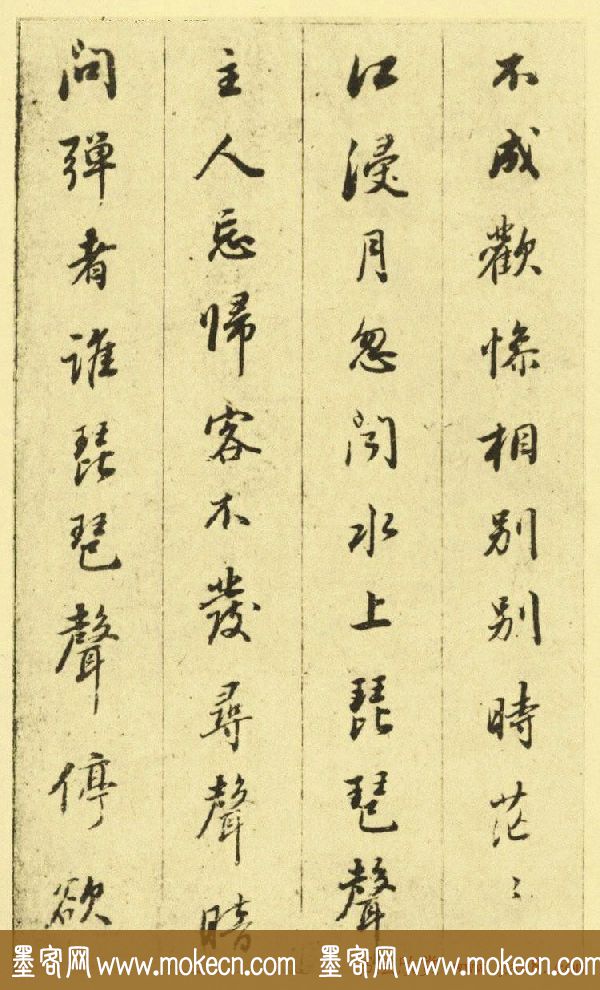 不成歡慘相別別時茫〻
江浸月忽聞水上琵琶聲
主人忘歸客不發尋聲暗
問彈者誰琵琶聲停欲
墨客网 www.mokecn.com 墨客网 www.mokecn.com